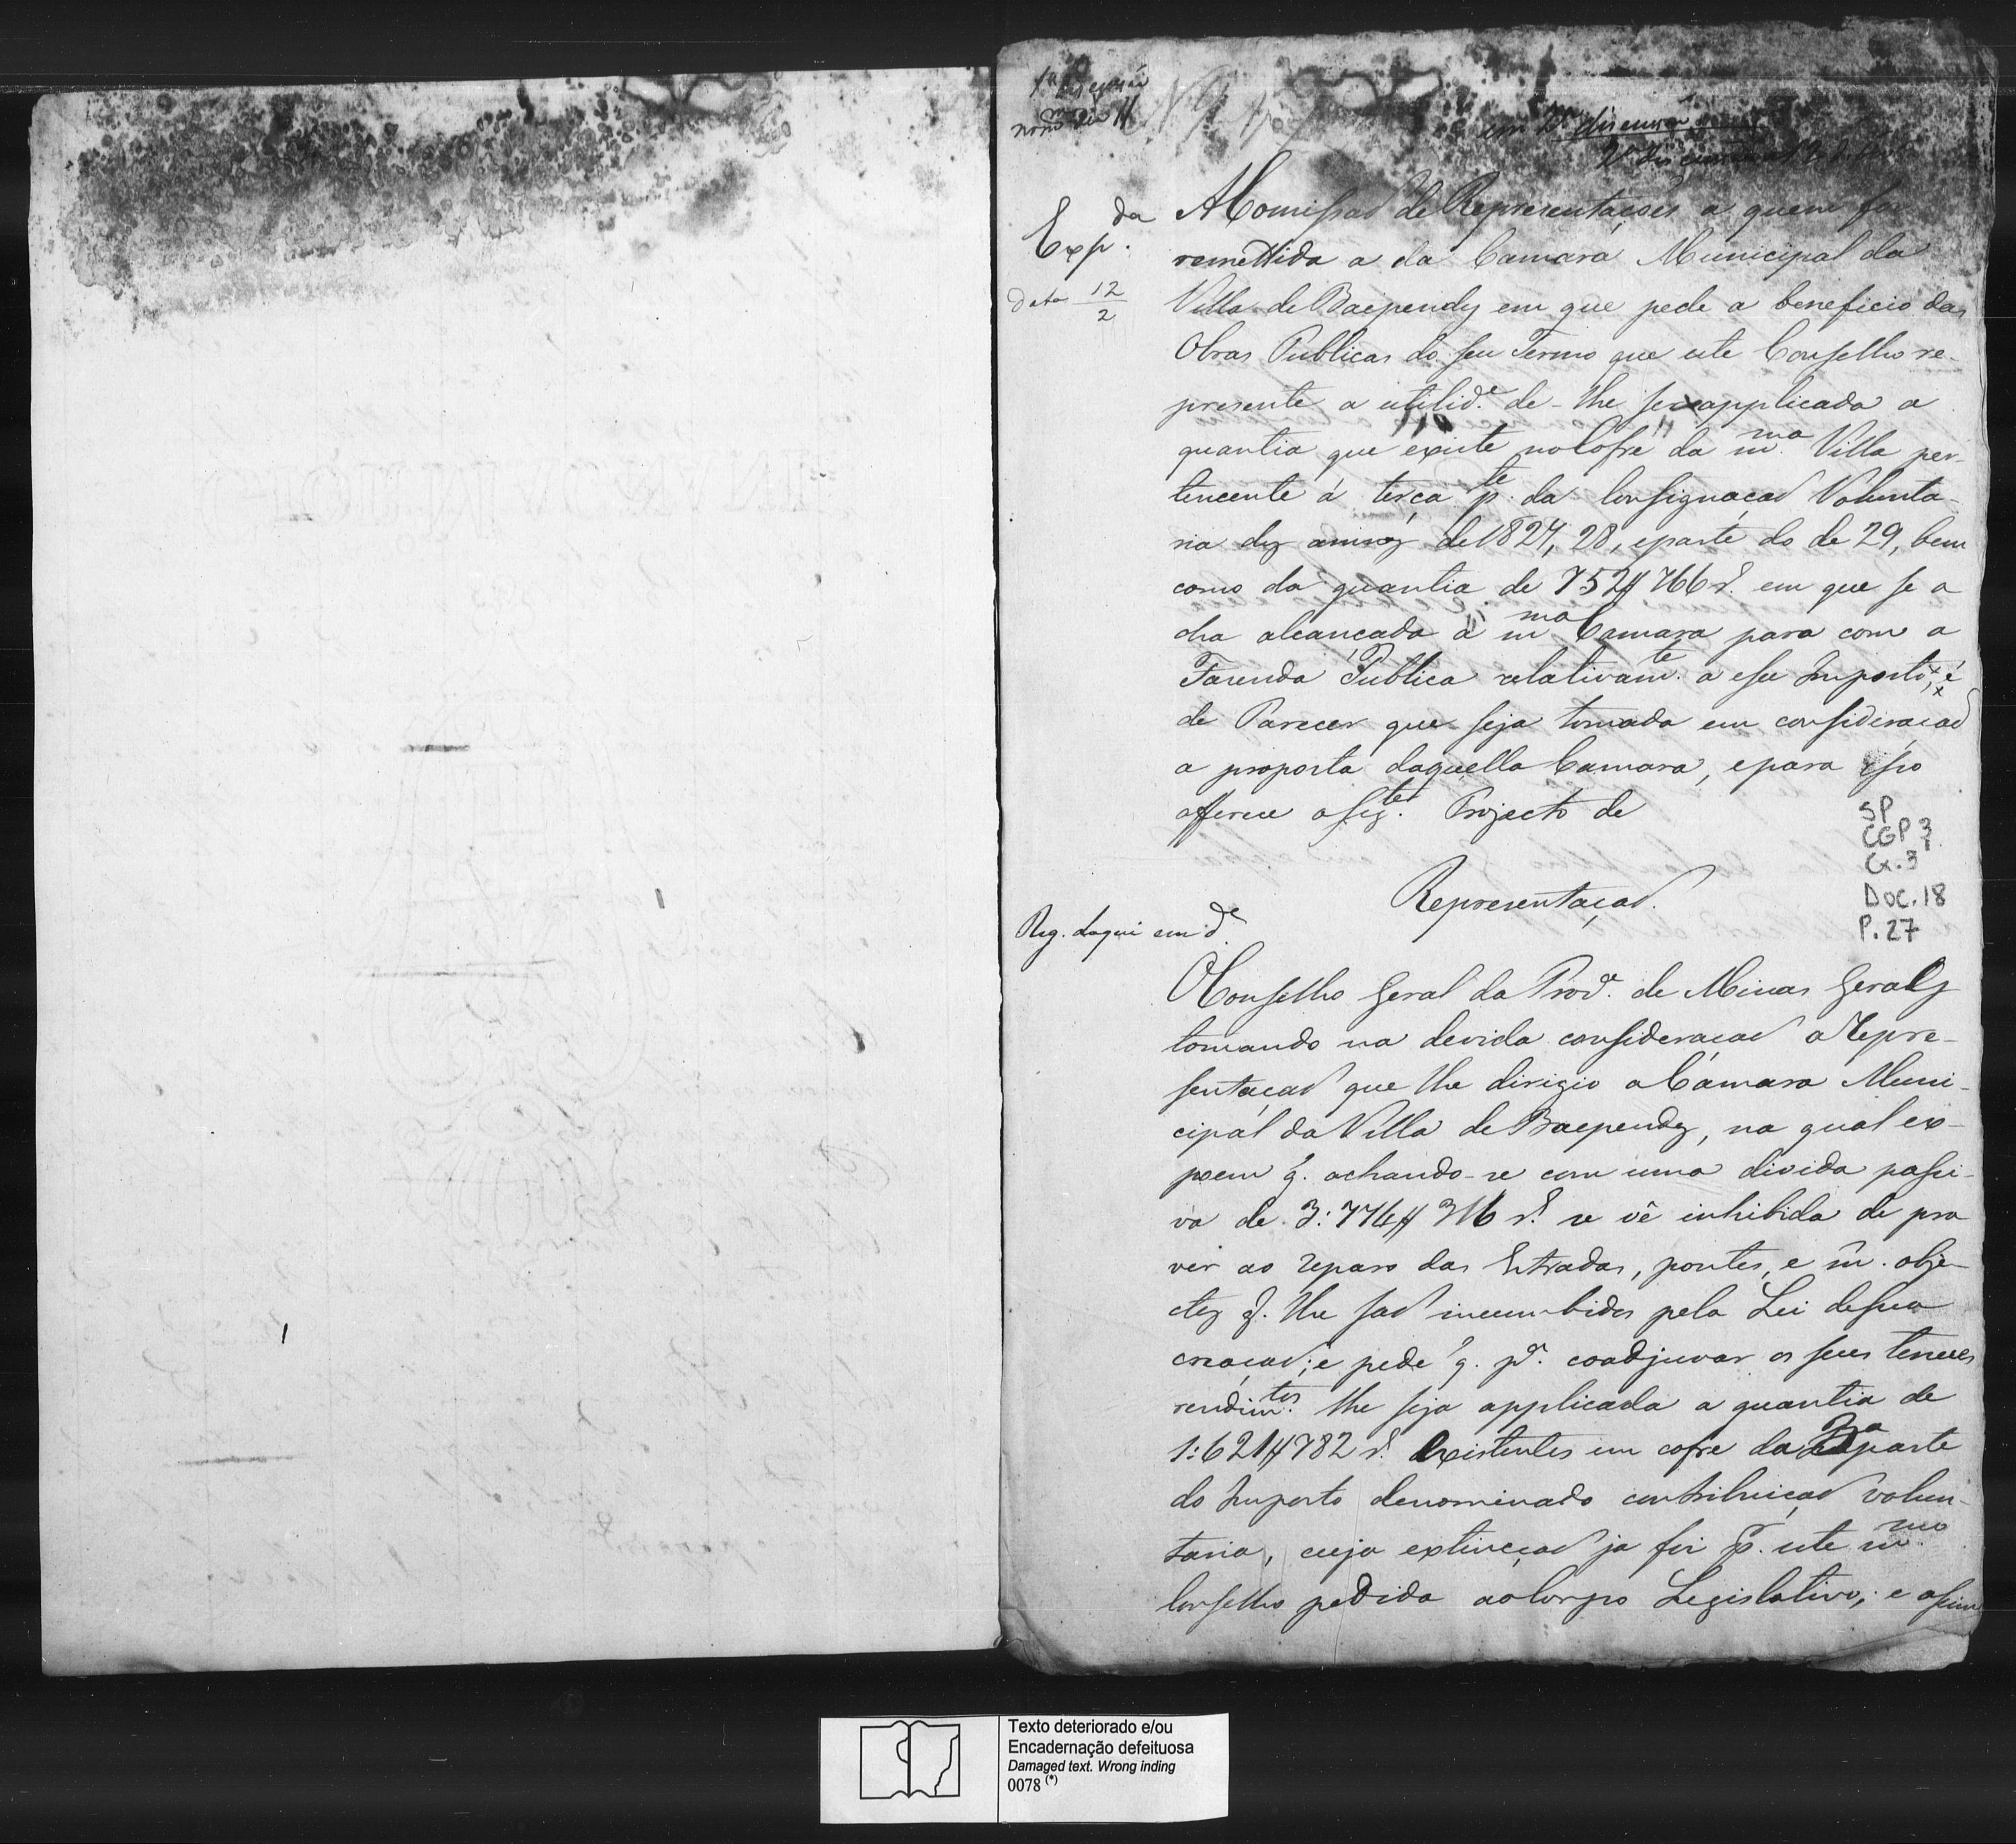 em 2ª discussão
E da
Exp.
data 12/2
A Comissaõ de Representaçoes a quem foi
remettida a da Camara Municipal da
Villa de Baependy em que pede a beneficio das
Obras Publicas do seu Termo que este Conselho re-
presente a utilid.e de-lhe ser applicada a
quantia que existe no Cofre da m.ma Villa per-
tencente á terça p.te da Consignaçaõ Volunta-
ria dos annos de 1827, 28, e parte do de 29, bem
como da quantia de 752#766 r.s em que se a
cha alcançada a m.ma Camara para com a
Fazenda Publica relativam.te a esse Imposto, é
de Parecer que seja tomada em consideraçaõ
a proposta daquella Camara, e para isso
offerece o seg.te Projecto de
SP
CGP 3
Cx. 3
Doc. 18
P. 27
Representaçaõ.
Reg. daqui em d.e
O Conselho Geral da Prov.ª de Minas Geraes
tomando na devida consideraçaõ a Repre-
sentaçaõ que lhe dirigio a Camara Muni-
cipal da Villa de Baependy, na qual ex-
poem q. achando-se com uma divida passi-
va de 3:774#316 r.s se vê inhibida de pro
ver ao reparo das Estradas, pontes, e m. obje-
ctos q. lhe saõ incumbidos pela Lei de sua
creaçaõ; e pede q. p.ª coadjuvar os seus tenues
rendim.tos lhe seja applicada a quantia de
1:621#782 r.s existentes em cofre da 3ª parte
do Imposto denominado contribuiçaõ volun-
taria, cuja extincçaõ ja foi p. este m.mo
Conselho pedida ao Corpo Legislativo; e assim
Texto deteriorado e/ou
Encadernação defeituosa
Damaged text. Wrong inding
0078 (*)